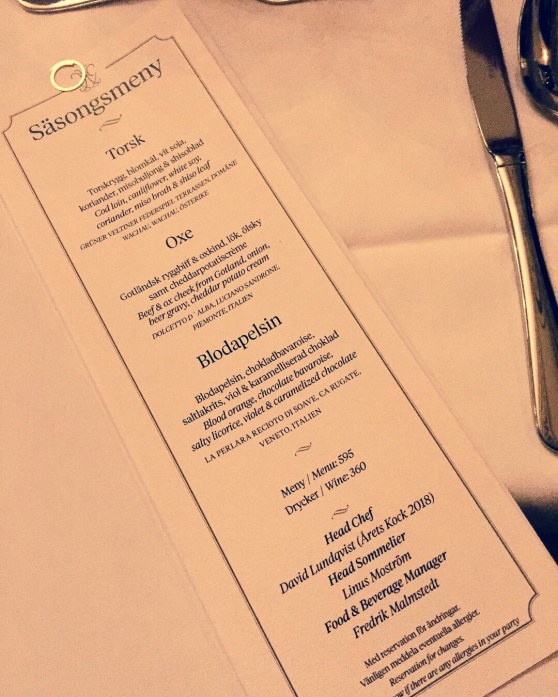 Säsongsmeny
Torsk
Torskrygg, blomkål, vit soja,
koriander, misobuljong & shisoblad
Cod loin, cauliflower, white soy,
coriander, miso broth & shiso leaf
GRÜNER VELTINER FEDERSPIEL TERRASSEN, DOMÄNE
WACHAU, WACHAU, ÖSTERIKE
Oxe
Gotländsk ryggbiff & oxkind, lök, ölsky
samt cheddarpotatiscrème
Beef & ox cheek from Gotland, onion,
beer gravy, cheddar potato cream
DOLCETTO D´ALBA, LUCIANO SANDRONE,
PIEMONTE, ITALIEN
Blodapelsin
Blodapelsin, chokladbavaroise,
saltlakrits, viol & karamelliserad choklad
Blood orange, chocolate bavaroise,
salty licorice, violet & caramelized chocolate
LA PERLARA RECIOTO DI SOAVE, CA RUGATE,
VENETO, ITALIEN
Meny / Menu: 595
Drycker / Wine: 360
Head Chef
David Lundqvist (Årets Kock 2018)
Head Sommelier
Linus Moström
Food & Beverage Manager
Fredrik Malmstedt
Med reservation för ändringar.
Vänligen meddela eventuella allergier.
Reservation for changes.
if there are any allergies in your party